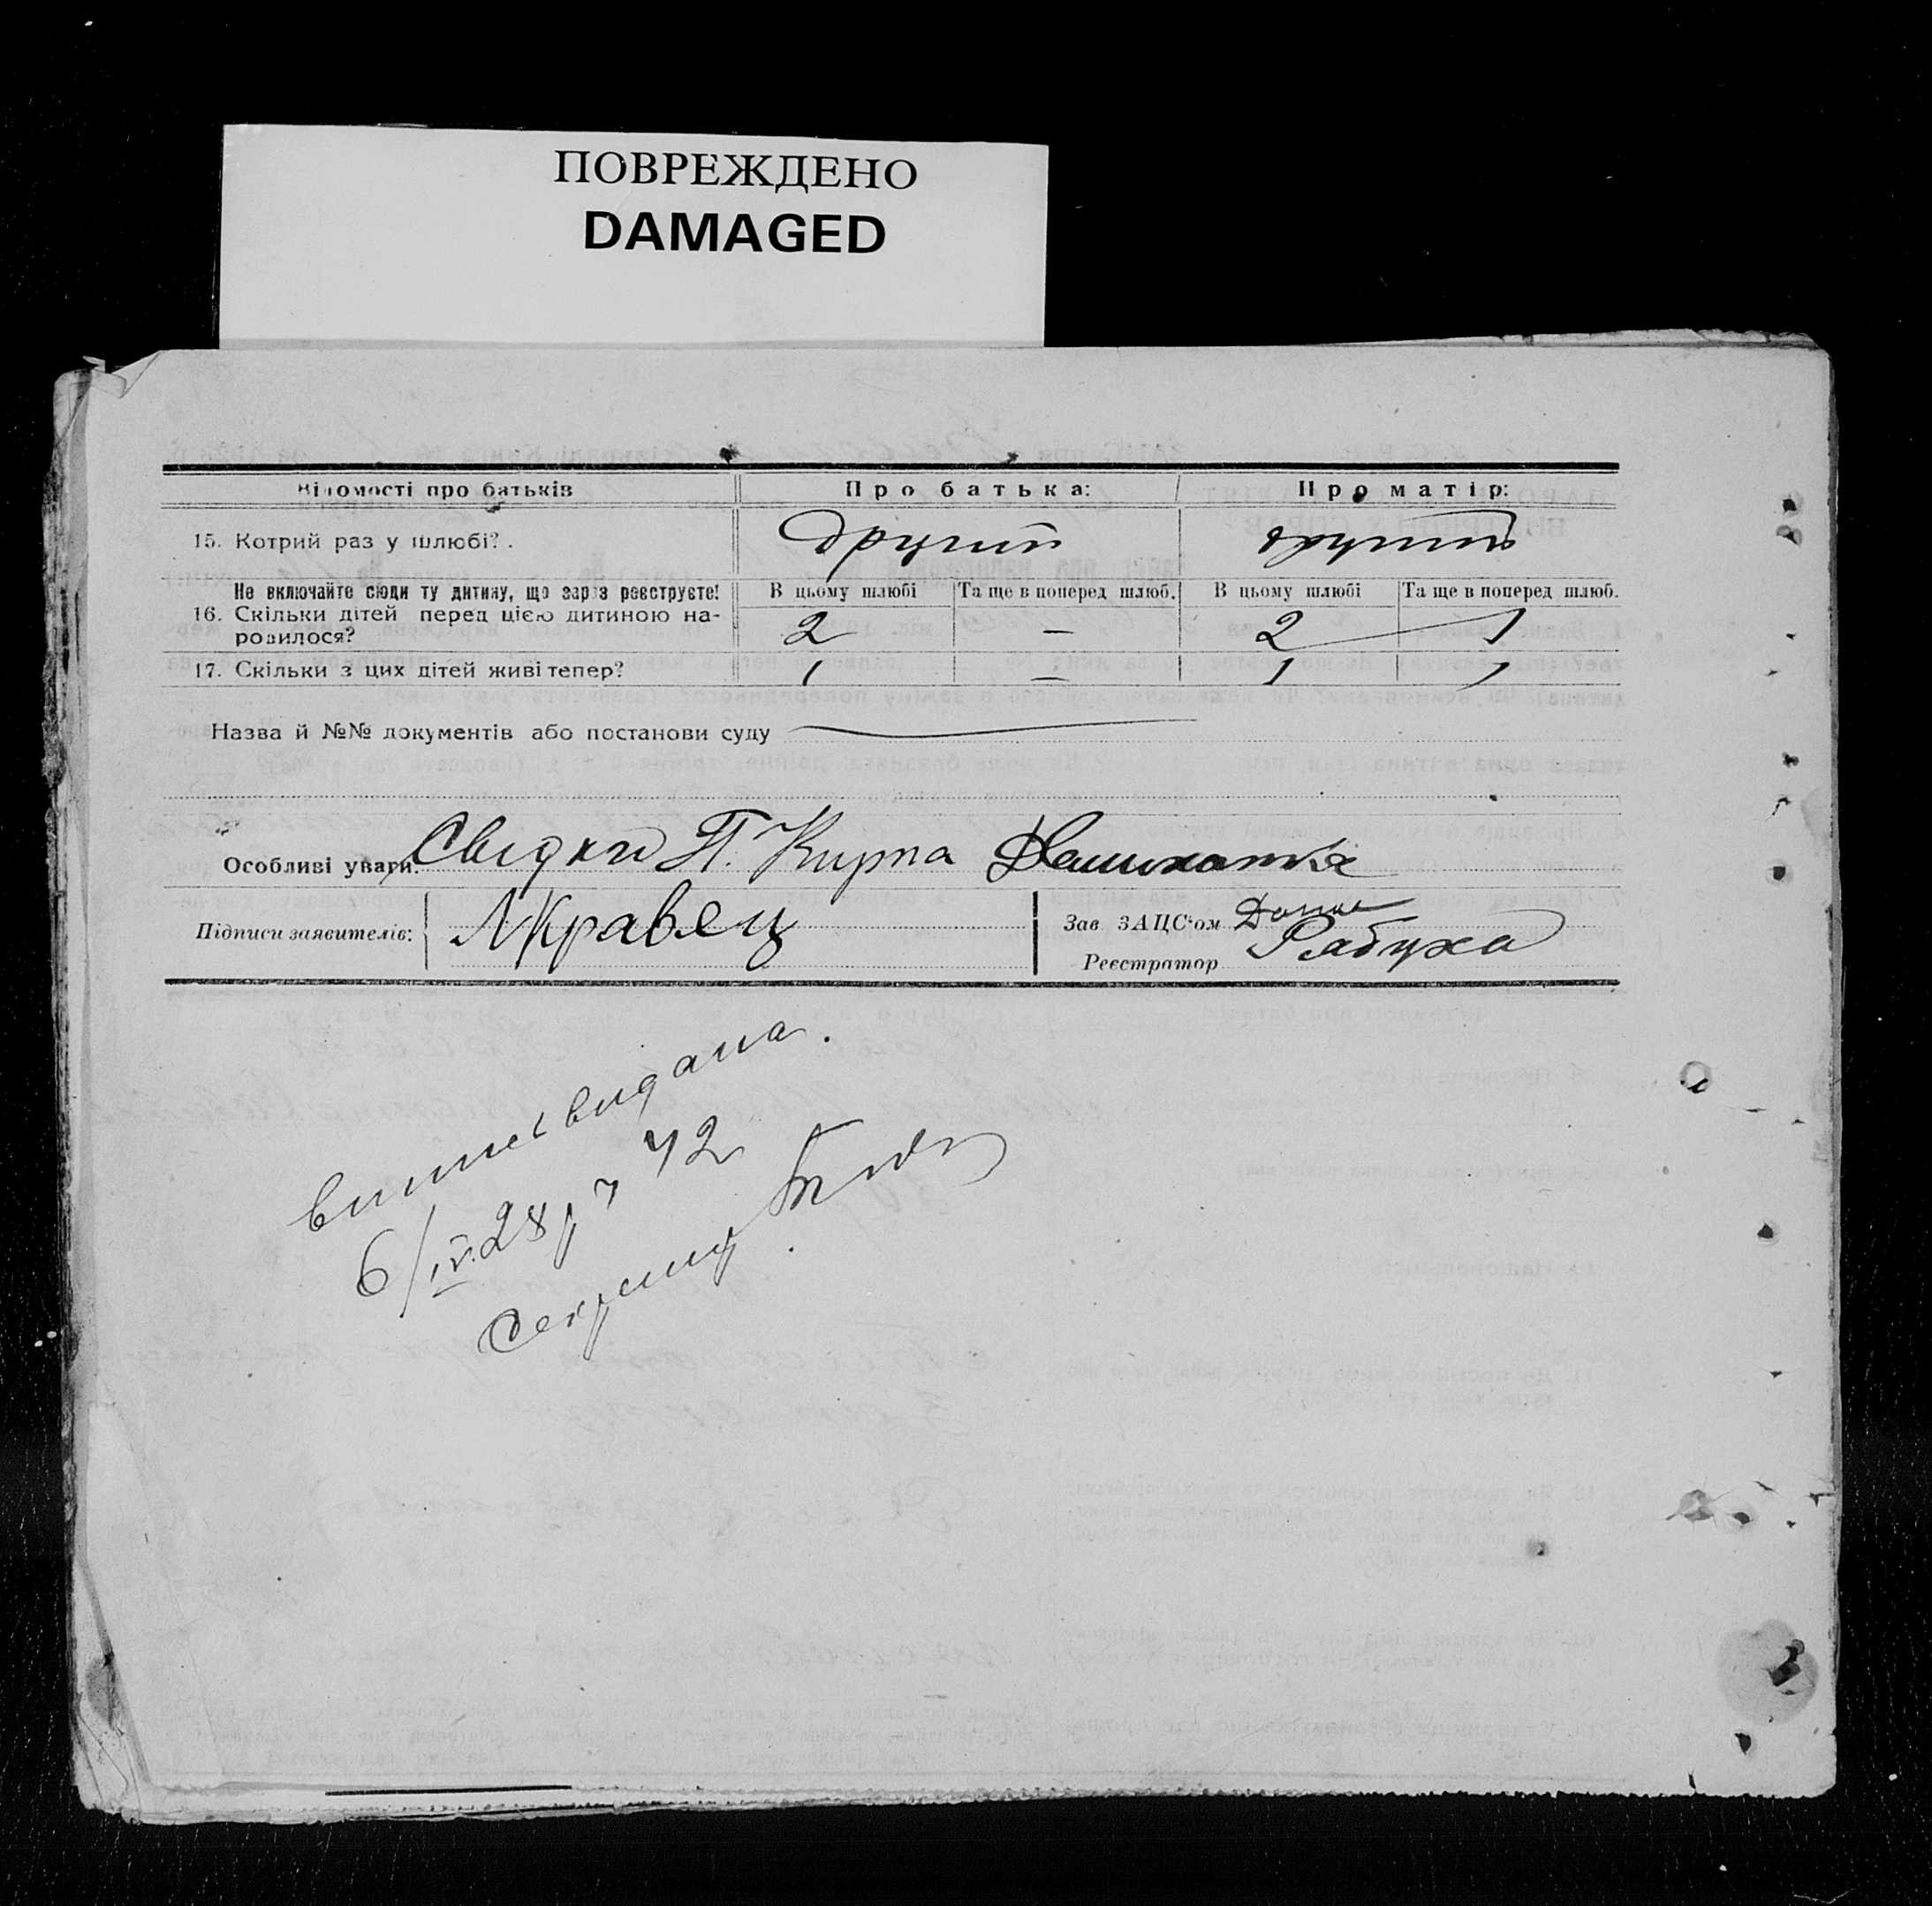 ПОВРЕЖДЕНО
DAMAGED
Відомості про батьків Про батька: Про матір:
15. Котрий раз у шлюбі? . другий другий
Не включайте сюди ту дитину, що зараз реєструєте! В цьому шлюбі Та ще в поперед шлюб. В цьому шлюбі Та ще в поперед шлюб.
16. Скільки дітей перед цією дитиною на-
родилося? 2 — 2 1
17. Скільки з цих дітей живі тепер? 1 — 1 1
Назва й №№ документів або постанови суду
Особливі уваги: Свідки П. Кирпа
Підписи заявителів: Мкравец Зав ЗАЦС'ом
Реєстратор Рябуха
видана.
6/IV.28р ч 42
Секрет